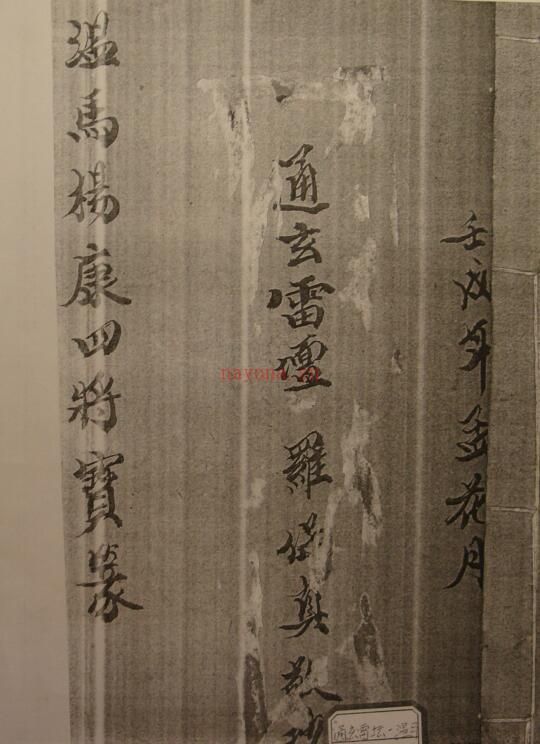 壬戌年孟花月
通玄雷壇 羅真敬
温馬楊康四將寶篆
nayona.cn
通玄雷坛-温